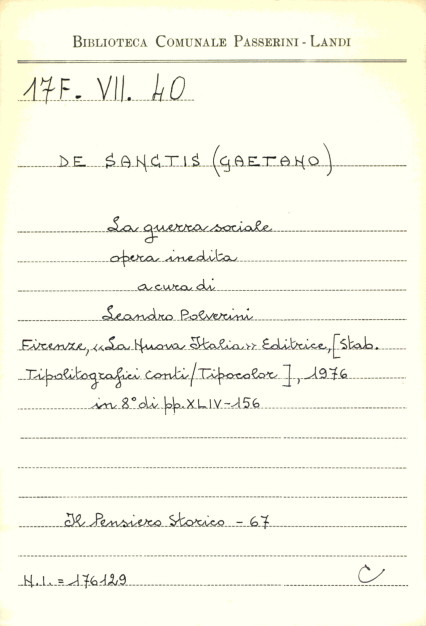 BIBLIOTECA COMUNALE PASSERINI - LANDI
17F. VII. 40
DE SANCTIS (GAETANO)
La guerra sociale
opera inedita
a cura di
Leandro Polverini
Firenze, «La Nuova Italia» Editrice, [Stab.
Tipolitografici Conti/Tipocolor], 1976
in 8° di pp. XLIV-156
Il Pensiero Storico - 67
N.I. = 176129
C